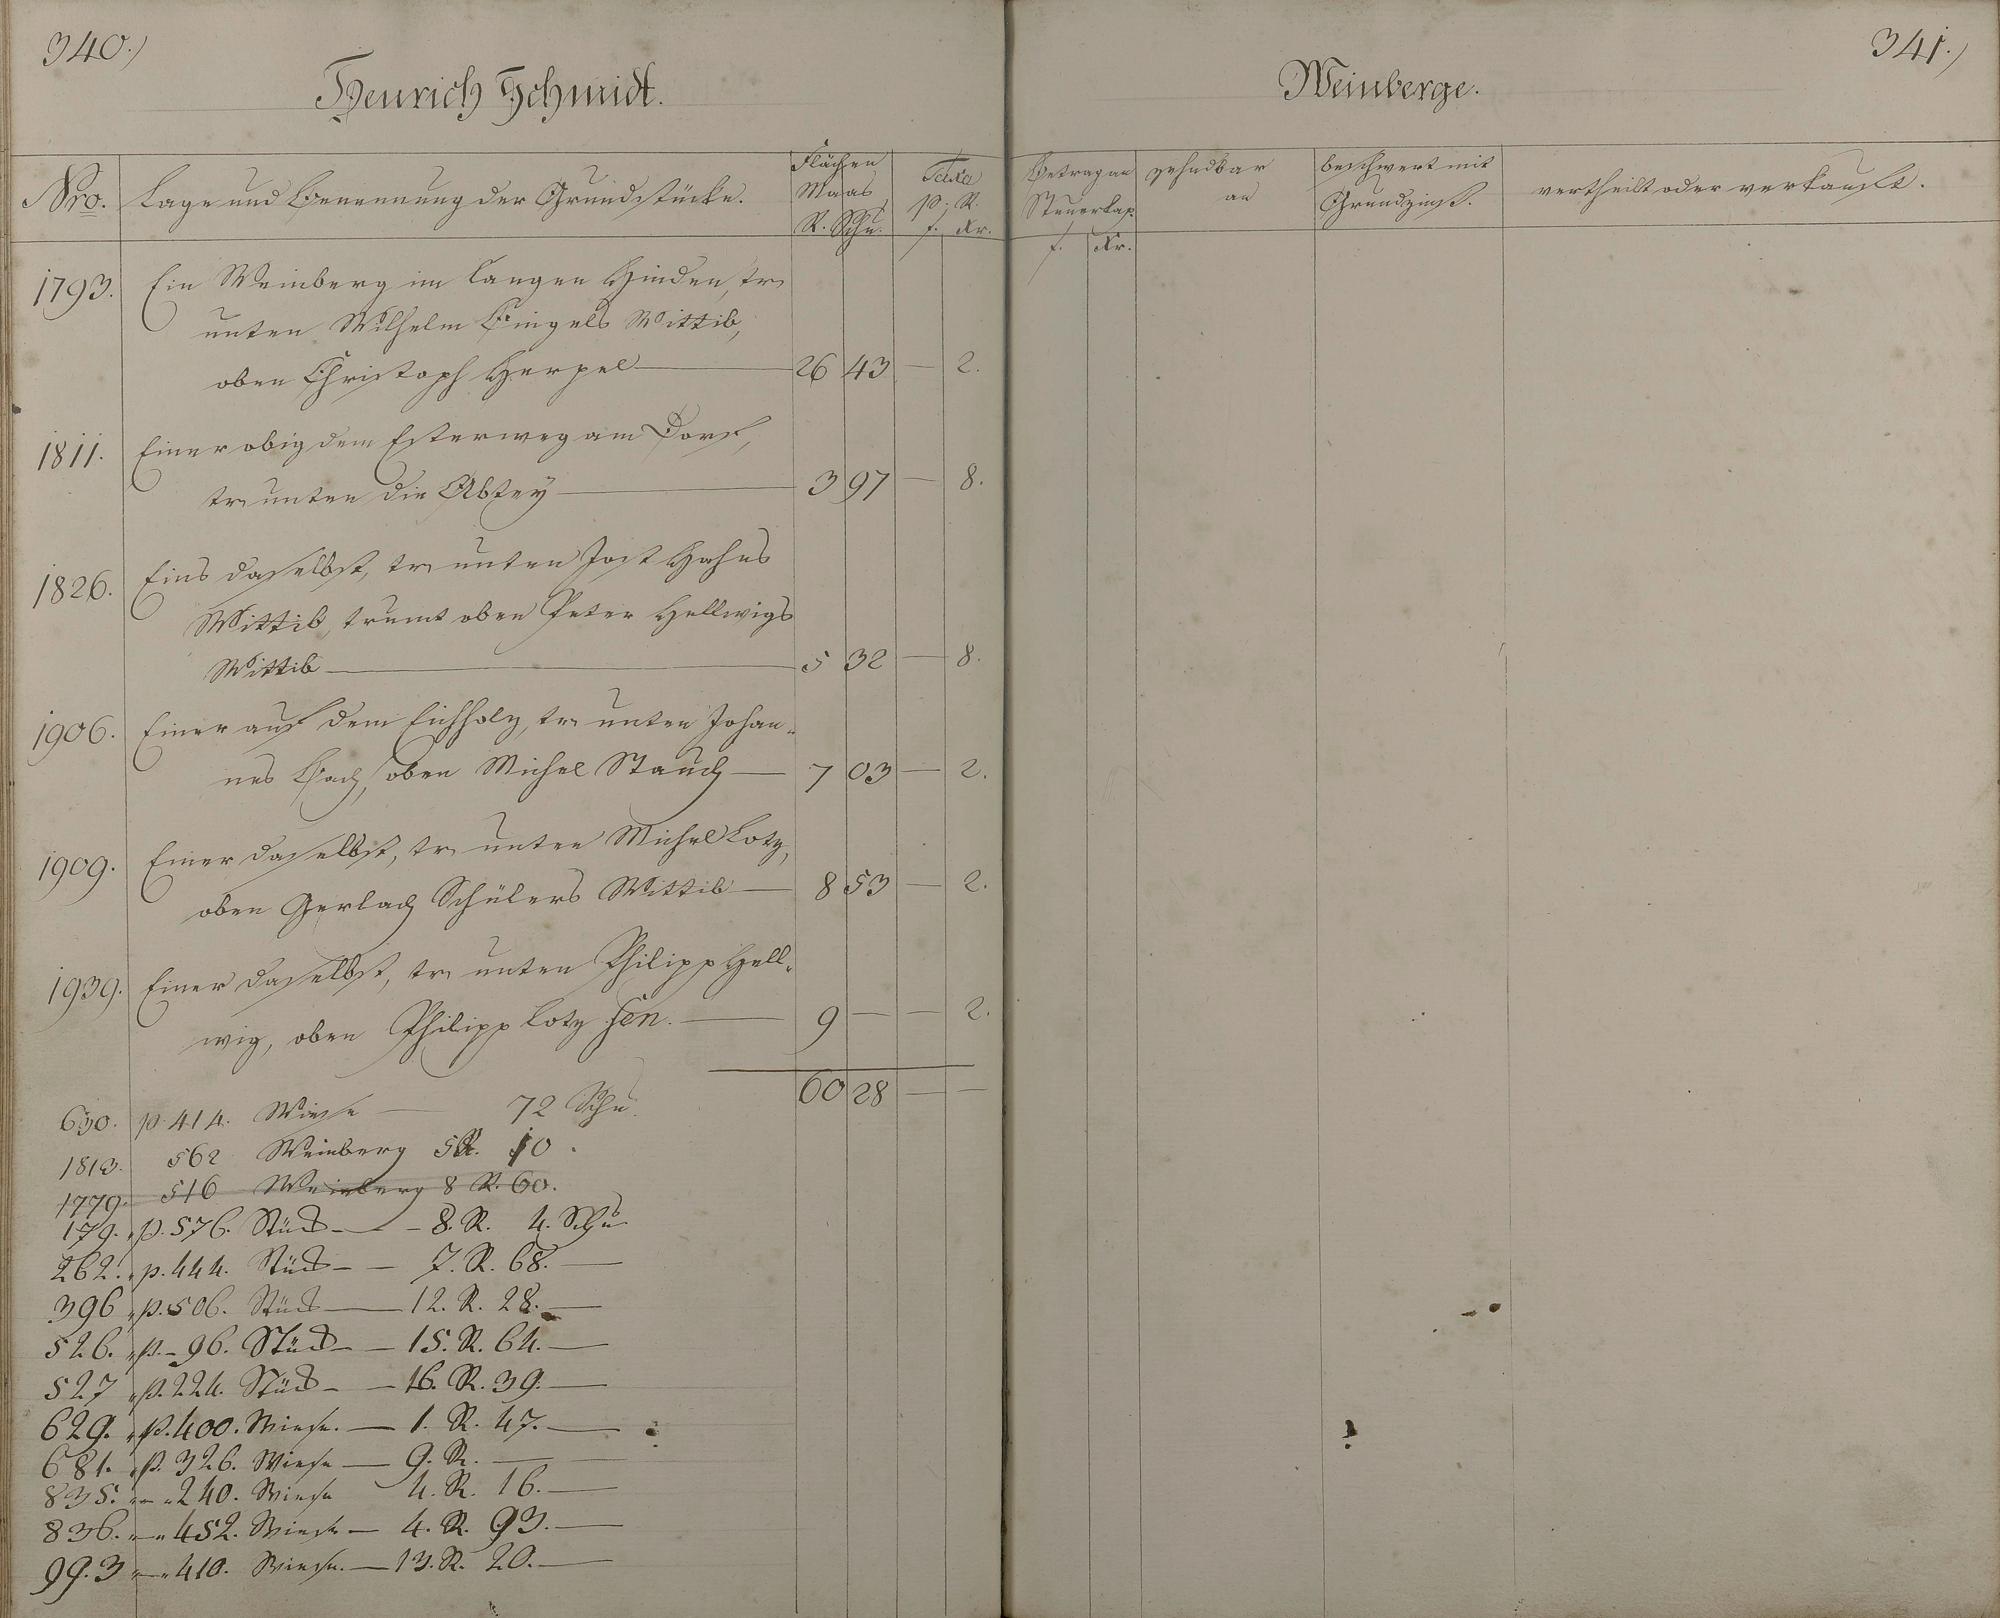 340.)
Henrich Schmidt.
Nro.
Lage und Benennung der Grundstücke.
Flächen
Maas
R. Schu.
Taxa
p. R.
f. Xr.
1793. Ein Weinberg im langen Hinden, tr
unten Wilhelm Bingels Wittib,
oben Christoph Herpel 26 43 — 2.
1811. Einer obig dem Esterweg am Dorf,
tr unten die Abtey 3 97 — 8.
1826. Eins daselbst, tr unten Jost Hahns
Wittib, trumt oben Peter Hellwigs
Wittib 5 32 — 8.
1906. Einer auf dem Eichholz, tr unten Johan-
nes Bach, oben Michel Stauch — 7 03 — 2.
1909. Einer daselbst, tr unten Michel Lotz,
oben Gerlach Schülers Wittib — 8 53 — 2.
1939. Einer daselbst, tr unten Philipp Hell-
wig, oben Philipp Lotz sen. — 9 — — 2.
60 28 — —
630. p. 414. Wiese — 72 Schu.
1813. 562 Weinberg 5 R. 10.
1779. 516 Weinberg 8 R. 60.
179. p. 576. Stück — 8. R. 4. Schu
262. p. 444. Stück — 7. R. 68. —
396 p. 506. Stück — 12. R. 28. —
526. p. 96. Stück — 15. R. 64. —
527 p. 224. Stück — 16. R. 39. —
629. p. 400. Wiese. — 1. R. 47. —
681. p. 326. Wiese — 9. R. —
835. 240. Wiese 4. R. 16. —
836. 452. Wiese — 4. R. 93. —
993 410. Wiese. — 13. R. 20. —
341.)
Weinberge.
Betrag an
Steuerkap.
f. Xr.
zehndbar
an
beschwert mit
Grundzinß.
vertheilt oder verkauft.